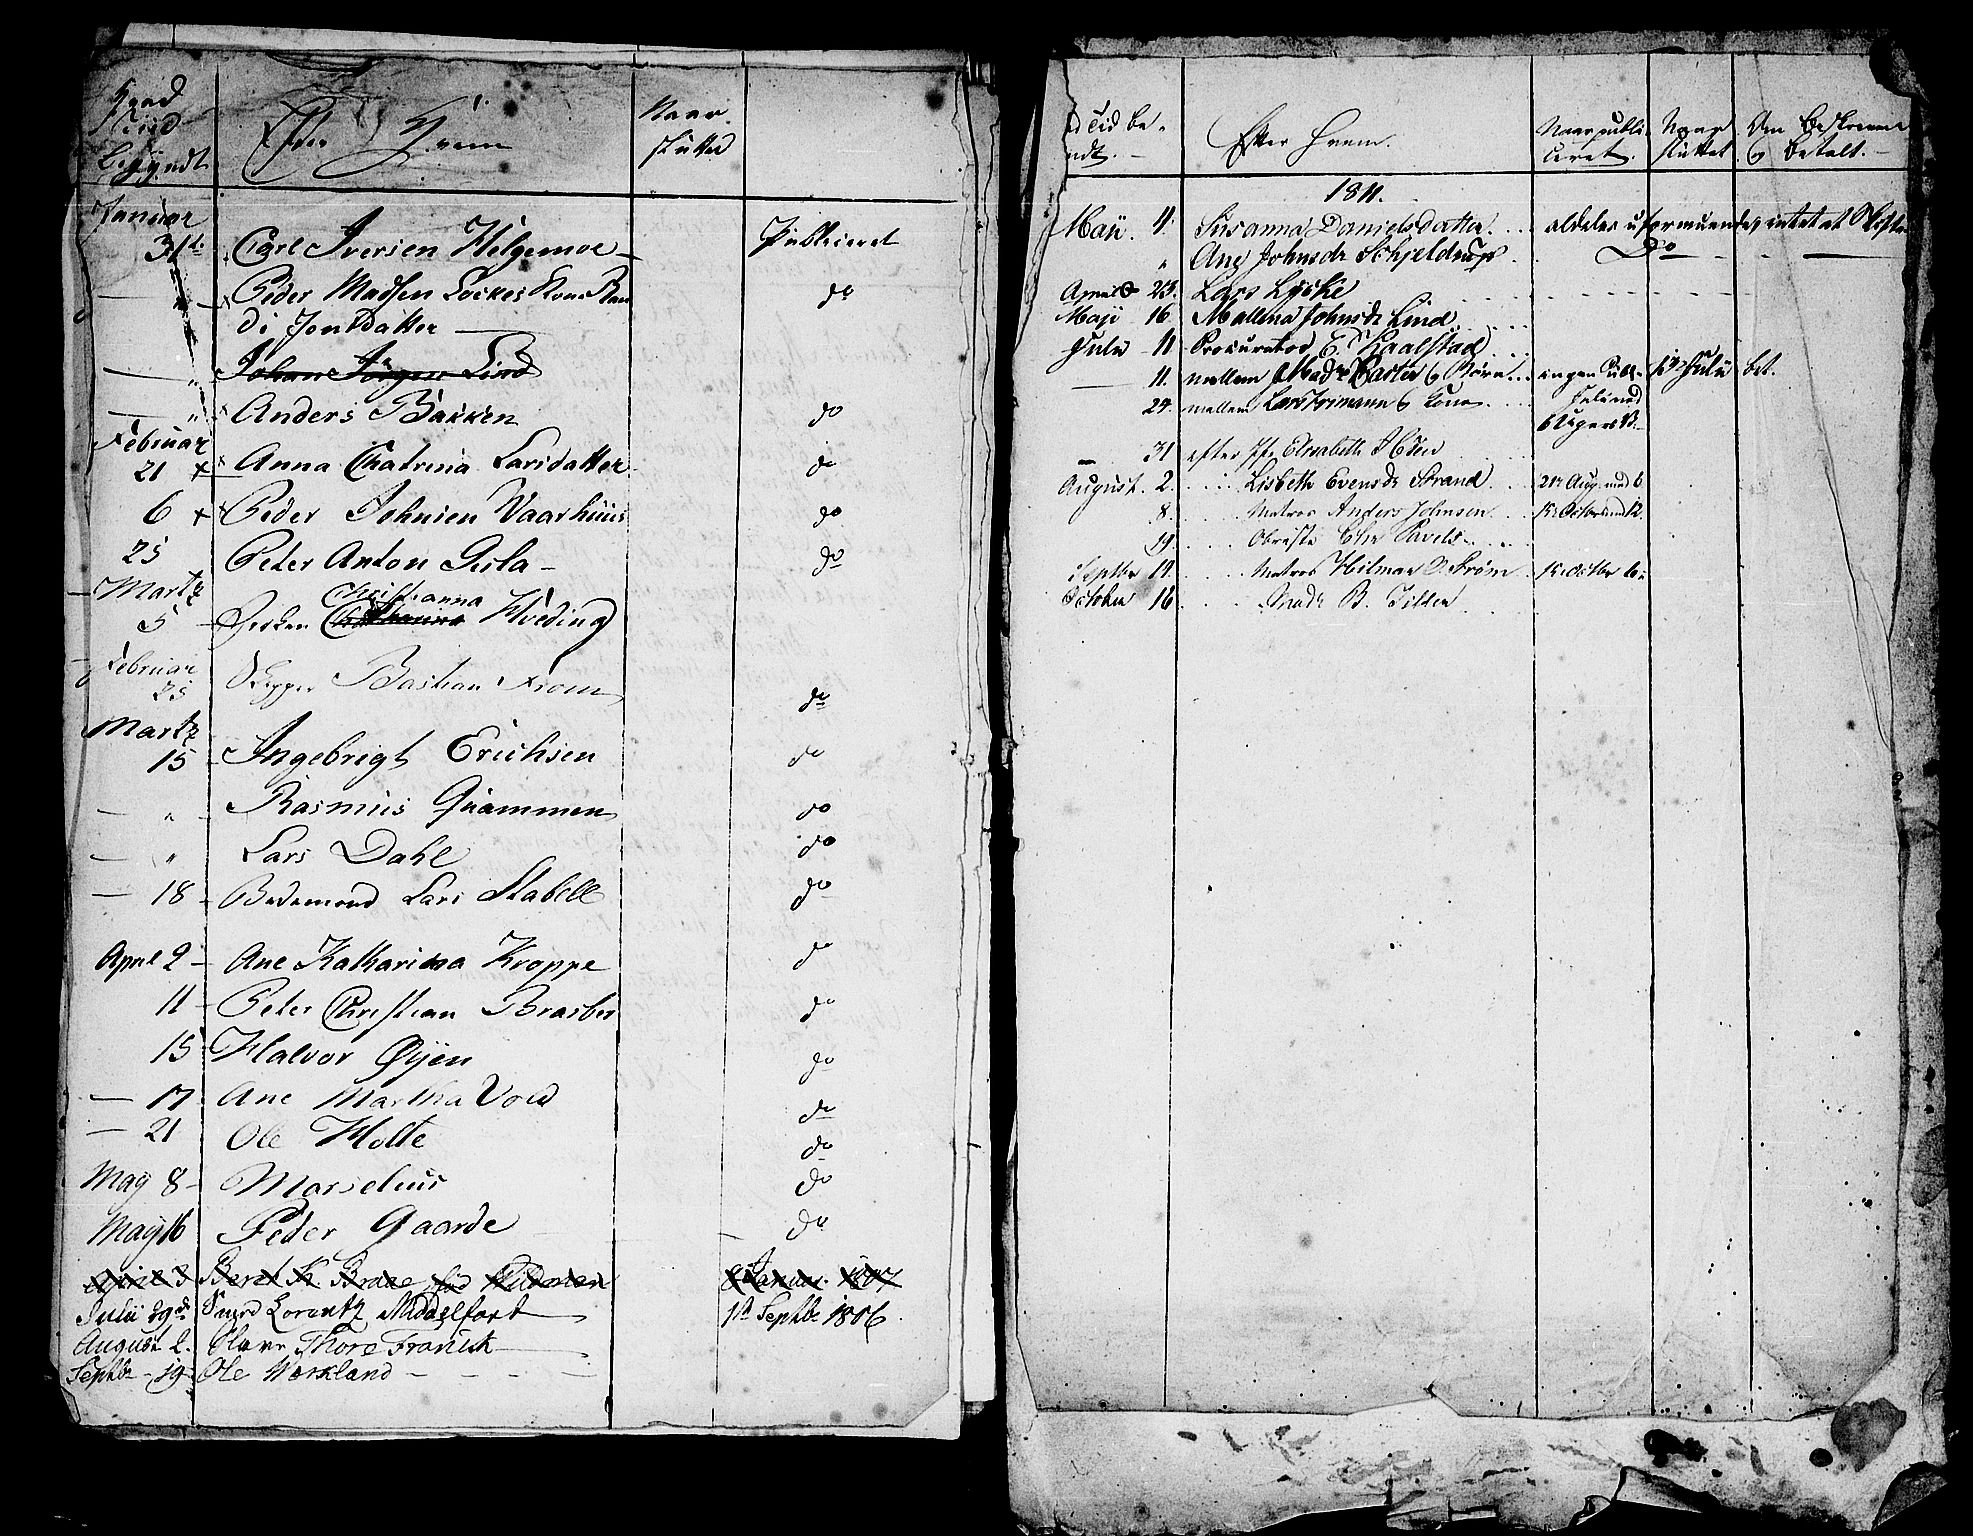 Hvad
Tiid
Begyndt
Efter Hvem
Naar
sluttet
Januar
31te Carl Iversen Helgemoe Publiceret
— " — Peder Madsen Lockes Kone Ran
di Jonsdatter — do
— " Johan Jörgen Lind
— " Anders Bakken do
Februar
21 x Anna Chatrina Larsdatter do
6 x Peder Johnsen Vaarhuus do
25 Peter Anton Gisla — do
Martz
Christianna
5 — Catharina Hveding
Februar
25 Skipper Bastian From do
Martz
15 Ingebrigt Erichsen do
— " Rasmus Qvammen do
— " Lars Dahl do
— 18 — Bedemand Lars Stabell do
April 2 — Ane Katharina Kroppe do
11 — Peter Christian Brasber do
15 Halvor Øyen do
— 17 Ane Martha Vold do
— 21 Ole Holte do
May 8 — Marselius do
May 16 Peder Gaarde do
April 3 Beret K. Braae fød Wildman 8 Januar 1807
Julii 29de Lorentz Middelfart 1te Septbr 1806.
August 2. Thore Franck
Septbr 19 Ole Værkland
d Tid be-
ndt. —
Efter Hvem.
Naar publi-
ceret.
Naar
sluttet.
Om beskreven
og betalt. —
1811.
Maji. 11. Susanna Danielsdatter. aldeles uformuende, intet at Skifte
" Ane Johnsdr Schjeldrup Do
April 23. Lars Lyske
Maji 16 Mallena Johnsdr Lind
Julii 11 Procurator E. Kaalstad
11. mellem Madr og Børn ingen Julii bet.
24. mellem Lars Frimann og Kone
6 Ugers V.
— 31 efter Jfr Elisabeth
August. 2. Lisbeth Evensdr Strand 2de Aug. med 6
8. Matros Anders Johnsen 15 October med 12.
19. Obriste
Septbr 19. Matros Hilmar Strøm 15 Octbr 6
October 16 Madr B. Tilden